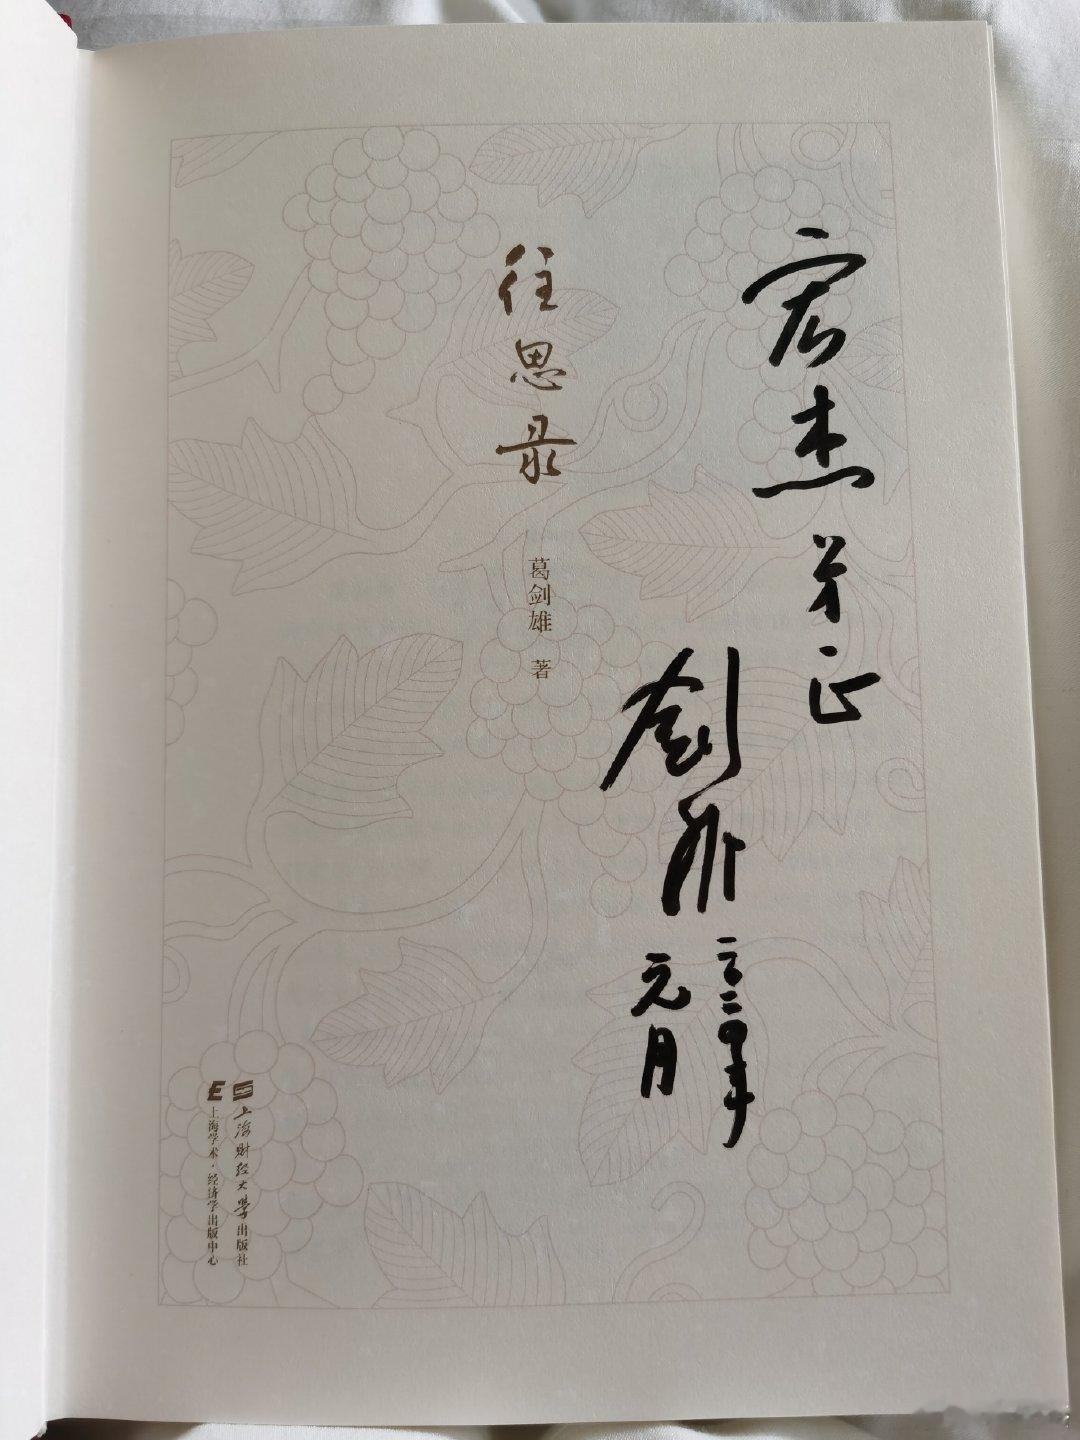 宏杰弟正
剑雄
二〇二〇年
元月
往思录
葛剑雄 著
上海财经大学出版社
上海学术·经济学出版中心